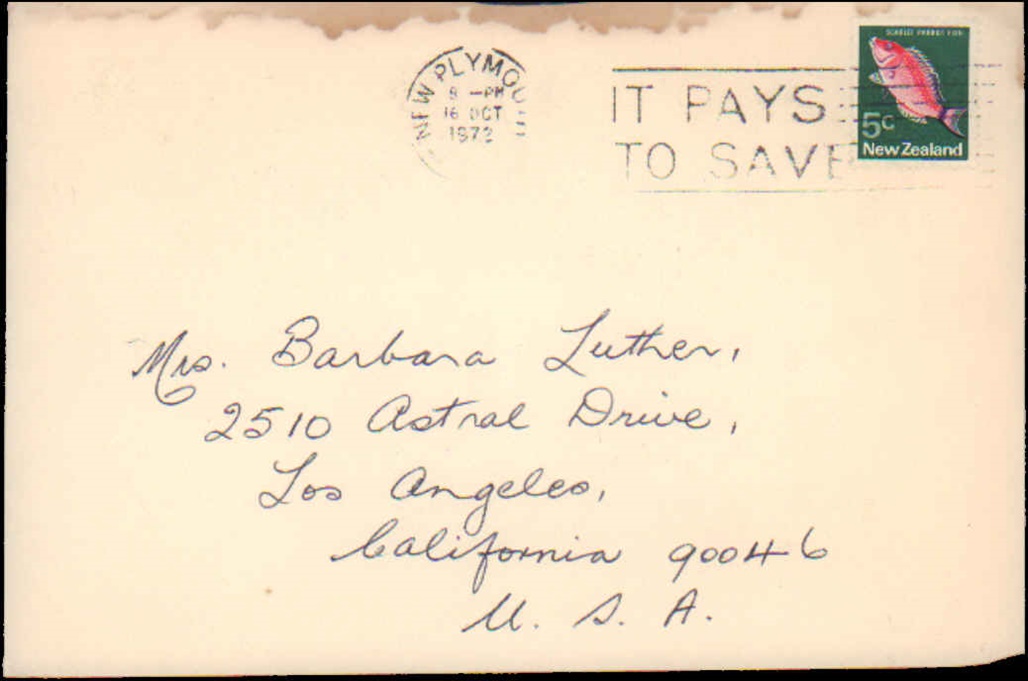 NEW PLYMOU
8 -PM
16 OCT
1972
IT PAYS
TO SAVE
SCARLET PARROT FISH
5c
New Zealand
Mrs. Barbara Luther,
2510 Astral Drive,
Los Angeles,
California 90046
U. S. A.